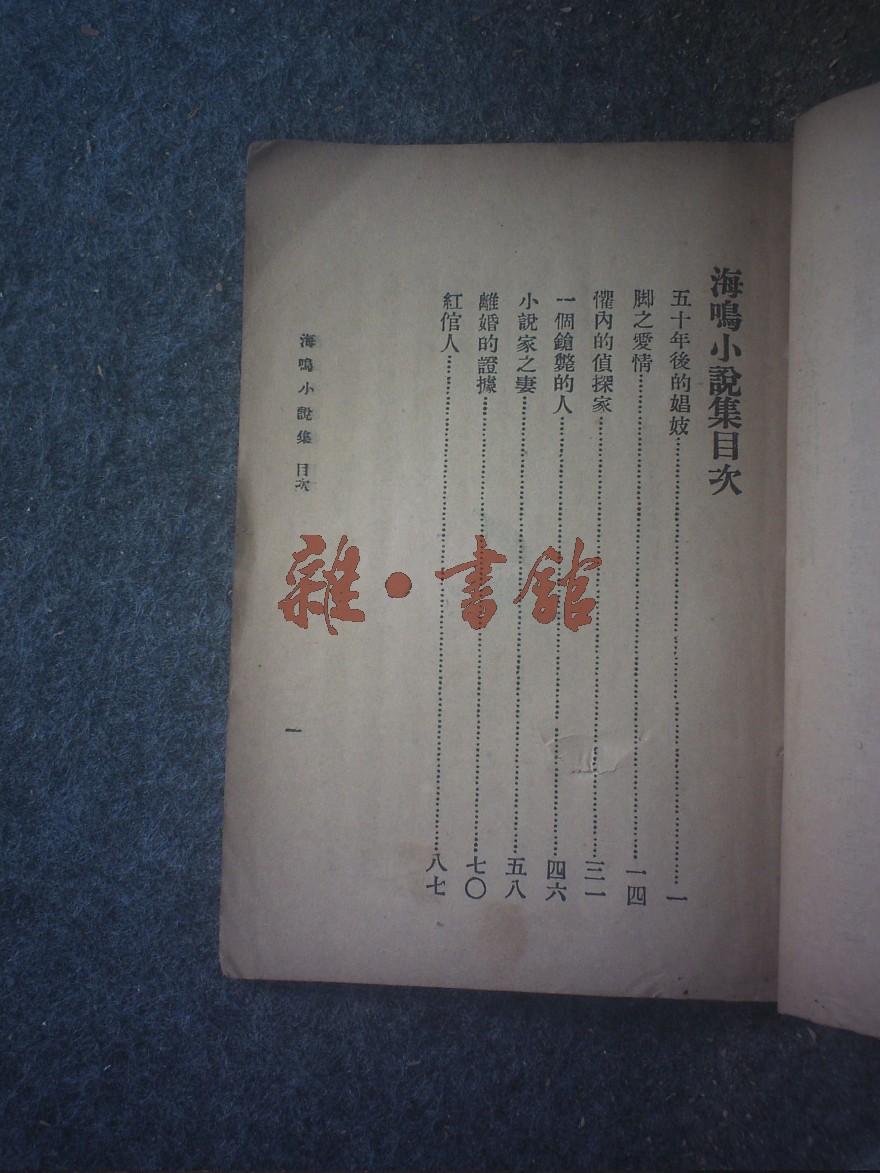 海鳴小說集目次
五十年後的娼妓…………一
脚之愛情…………一四
懼內的偵探家…………三一
一個鎗斃的人…………四六
小說家之妻…………五八
離婚的證據…………七〇
紅倌人…………八七
海鳴小說集 目次
一
雜·書館